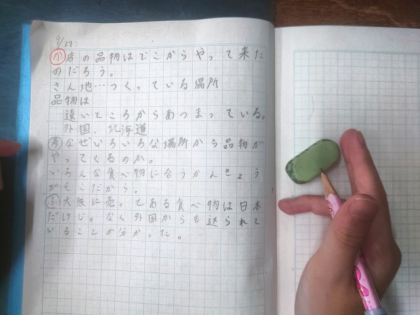 9/17
か店の品物はどこからやって来た
のだろう。
さん地…つくっている場所
品物は
遠いところからあつまっている。
外国、北海道
考なぜいろいろな場所から品物が
やってくるのか。
いろんな食べ物に合うかんきょう
がそこだから。
大阪に売ってある食べ物は日本
だけじゃなく外国からも送られて
いることが分かった。